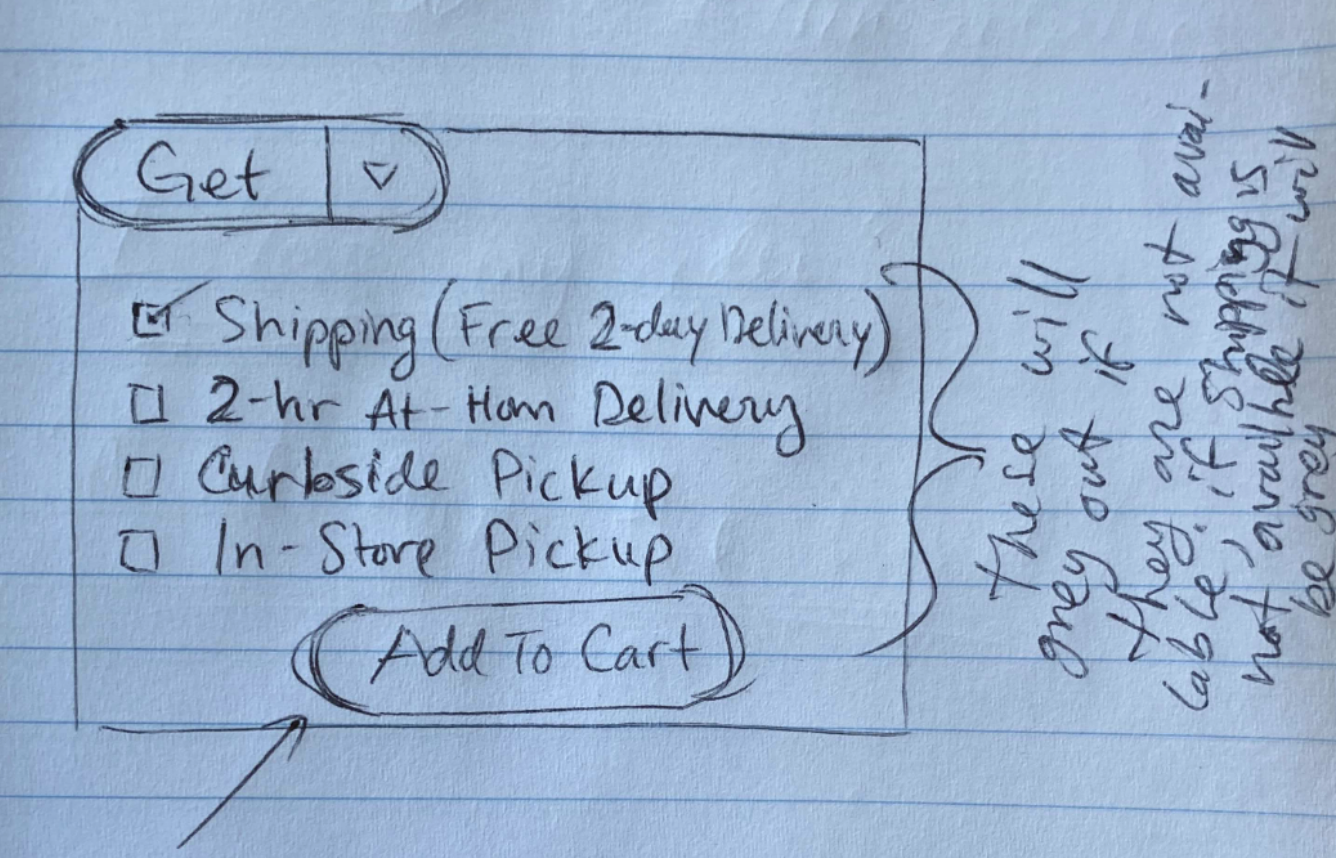 Get
Shipping (Free 2-day Delivery)
2-hr At-Hom Delivery
Curbside Pickup
In-Store Pickup
Add To Cart
these will
grey out if
they are not avai-
lable, if Shipping is
not availble it will
be grey